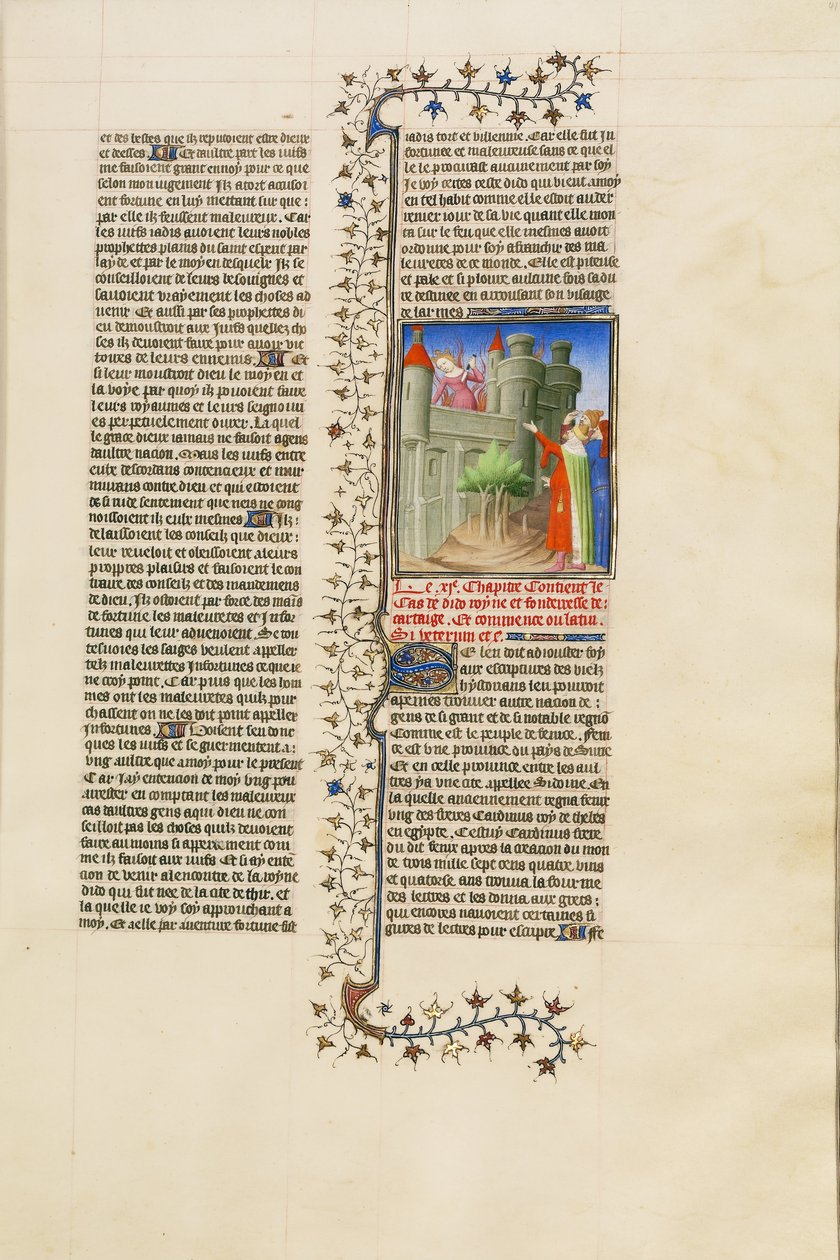 et des bestes que ilz reputoient estre dieux
et deesses. Et daultre part les iuifs
me faisoient grant ennoy pour ce que
selon mon iugement Ilz a tort accusoi
ent fortune en luy mettant sur que:
par elle ilz feussent maleureux. Car
les iuifs iadis auoient leurs nobles
prophettes plains du saint esperit par
layde et par le moyen desquelx Ilz se
conseilloient de leurs besoingnes et
sauoient vrayement les choses ad
uenir Et aussi par ses prophettes di
eu demonstroit aux Juifs quelles cho
ses ilz deuoient faire pour auoir vic
toires de leurs ennemis. Et
si leur monstroit dieu le moyen et
la voye par quoy ilz pouoient faire
leurs royaumes et leurs seignouri
es perpetuelement durer. La quel
le grace dieux iamais ne faisoit a gens
daultre nacion. Mais les iuifs entre
eulx descordans contencieux et mur
murans contre dieu et qui estoient
de si rude sentement que neis ne cong
noissoient ilz eulx mesmes Ilz:
delaissoient les conseilz que dieux:
leur reueloit et obeissoient a leurs
proppres plaisirs et faisoient le con
traire des conseilz et des mandemens
de dieu. Ilz ostoient par force des mais
de fortune les maleuretes et Infor
tunes qui leur aduenoient. Se tou
tesuoies les saiges veulent appeller
telz maleurettes Infortunes ce que ie
ne croy point. Car puis que les hom
mes ont les maleuretes quilz pour
chassent on ne les doit point appeller
Infortunes. Voisent sen donc
ques les iuifs et se guermentent a:
vng aultre que a moy pour le present
Car Jay entencion de moy vng pou
arrester en comptant les maleureux
cas daultres gens a qui dieu ne con
seilloit pas les choses quilz deuoient
faire au moins si appertement com
me ilz faisoit aux iuifs Et si ay enten
cion de venir alencontre de la royne
dido qui fut nee de la cite de thir. et
la quelle ie voy soy approuchant a
moy. Et a elle par auenture fortune fist
iadis tort et villennie. Car elle fut In
fortunee et maleureuse sans ce que el
le le procurast aucunement par soy
Je voy certes ceste dido qui vient a moy
en tel habit comme elle estoit au der
renier iour de sa vie quant elle mon
ta sur le feu que elle mesmes auoit
ordonne pour soy affranchir des ma
leuretes de ce monde. Elle est piteuse
et pale et si ploure aulcune fois sa du
re destinee en arrousant son visaige
de larmes
Le .xie. Chapitre Contient le
Cas de dido royne et fonderesse de:
cartaige. Et commence ou latin.
Si veterum et c.
Se len doit adiouster foy
aux escriptures des vielz
hystorians len pourroit
a peines trouuer autre nacion de:
gens de si grant et de si notable regnom
Comme est le peuple de fenice. Feni
ce est vne prouince du pays de Surie
Et en celle prouince entre les aul
tres ya vne cite appellee Sidoine. En
la quelle anciennement regna fenix
vng des freres Cardinus roy de thebes
en egypte. Cestuy Cardinus frere
du dit fenix apres la creacion du mon
de trois mille sept cens quatre vins
et quatorse ans trouua la fourme
des lettres et les donna aux grecs:
qui encores nauoient certaines fi
gures de lectres pour escripre Fe